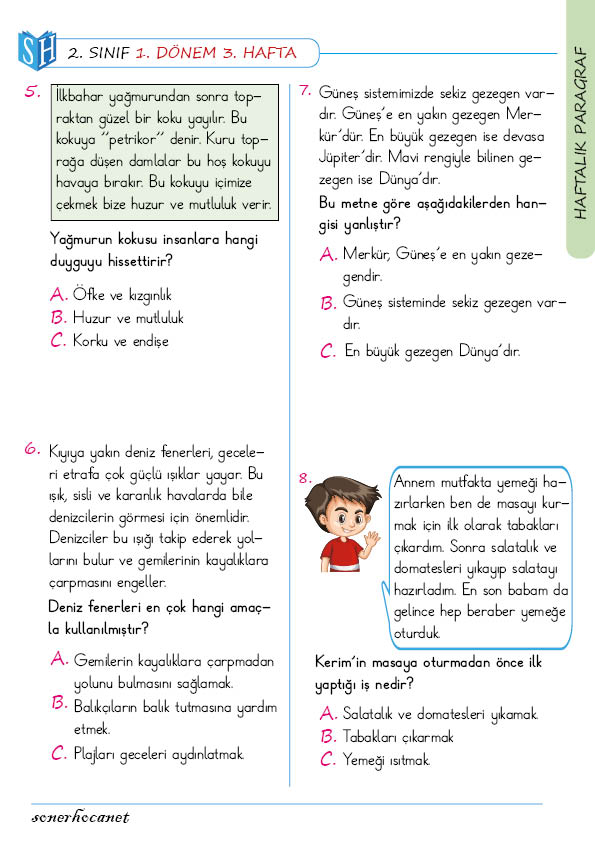 SH
2. SINIF 1. DÖNEM 3. HAFTA
HAFTALIK PARAGRAF
5.
İlkbahar yağmurundan sonra top-
raktan güzel bir koku yayılır. Bu
kokuya “petrikor” denir. Kuru top-
rağa düşen damlalar bu hoş kokuyu
havaya bırakır. Bu kokuyu içimize
çekmek bize huzur ve mutluluk verir.
Yağmurun kokusu insanlara hangi
duyguyu hissettirir?
A. Öfke ve kızgınlık
B. Huzur ve mutluluk
C. Korku ve endişe
6. Kıyıya yakın deniz fenerleri, gecele-
ri etrafa çok güçlü ışıklar yayar. Bu
ışık, sisli ve karanlık havalarda bile
denizcilerin görmesi için önemlidir.
Denizciler bu ışığı takip ederek yol-
larını bulur ve gemilerinin kayalıklara
çarpmasını engeller.
Deniz fenerleri en çok hangi amaç-
la kullanılmıştır?
A. Gemilerin kayalıklara çarpmadan
yolunu bulmasını sağlamak.
B. Balıkçıların balık tutmasına yardım
etmek.
C. Plajları geceleri aydınlatmak.
7. Güneş sistemimizde sekiz gezegen var-
dır. Güneş’e en yakın gezegen Mer-
kür’dür. En büyük gezegen ise devasa
Jüpiter’dir. Mavi rengiyle bilinen ge-
zegen ise Dünya’dır.
Bu metne göre aşağıdakilerden han-
gisi yanlıştır?
A. Merkür, Güneş’e en yakın geze-
gendir.
B. Güneş sisteminde sekiz gezegen var-
dır.
C. En büyük gezegen Dünya’dır.
8.
Annem mutfakta yemeği ha-
zırlarken ben de masayı kur-
mak için ilk olarak tabakları
çıkardım. Sonra salatalık ve
domatesleri yıkayıp salatayı
hazırladım. En son babam da
gelince hep beraber yemeğe
oturduk.
Kerim’in masaya oturmadan önce ilk
yaptığı iş nedir?
A. Salatalık ve domatesleri yıkamak.
B. Tabakları çıkarmak
C. Yemeği ısıtmak.
sonerhocanet